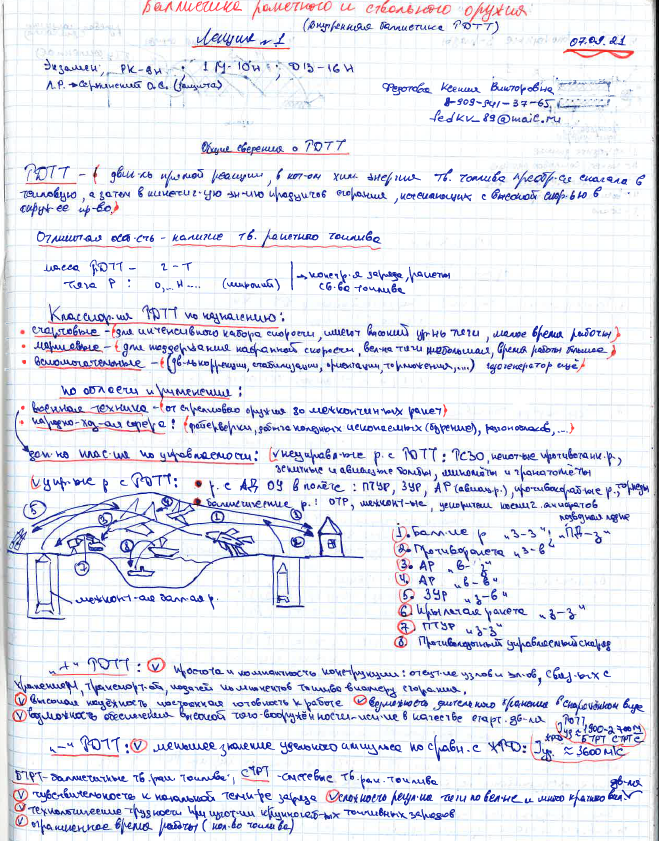 Баллистика ракетного и ствольного оружия
(внутренняя баллистика РДТТ)
Лекция №1
07.09.21
Экзамен: РК-9н ; 1 ПУ-10н ;
Л.Р. → (защита)
Федотова Ксения Викторовна
8-909-941-37-65
fedkv_89@mail.ru
Общие сведения о РДТТ
РДТТ - двиг-ль прямой реакции, в кот-ом хим. энергия тв. топлива преобр-ся сначала в
тепловую, а затем в кинетич-ую эн-гию продуктов сгорания, истекающих с высокой скор-ью в
окруж-ее пр-во.
Отличит-ая ос-ть - наличие тв. ракетного топлива
масса РДТТ - г - Т
тяга Р : 0,..Н-... (широкий)
констр-я заряда, ракеты
св-ва топлива
Классиф-ия РДТТ по назначению:
• стартовые - (для интенсивного набора скорости, имеют высокий ур-нь тяги, малое время работы)
• маршевые - (для поддержания набранной скорости, вел-на тяги небольшая, время работы больше)
• вспомогательные - (дв-ль коррекции, стабилизации, ориентации, торможения, ....) газогенератор ещё
по области применения:
• военная техника - (от стрелкового оружия до межконтин-ых ракет)
• народно-хоз-ая сфера: (фейерверки, добыча полезных ископаемых (бурение), ...)
клас-ия по управляемости: (v неуправл-ые р. с РДТТ: РСЗО, некот-ые противотанк. р.,
зенитные и авиац-ые бомбы, миномёты и гранатомёты
v упр-ые р с РДТТ: • р. с АД ОУ в полёте: ПТУР, ЗУР, АР (авиац. р.), противокорабл-ые р., торпеды
• баллистические р.: ОТР, межконт-ые, ускорители космич. аппаратов
подводная лодка
1. Баллис-ие р „З-З"; „ПЛ-З"
2. Противоракета „З-В"
3. АР „В-З"
4. АР „В-В"
5. ЗУР „З-В"
6. Крылатая ракета „З-З"
7. ПТУР „З-З"
8. Противолодочный управляемый снаряд
межконт-ая балл-ая р.
„+" РДТТ: v простота и компактность конструкции: отсут-ие узлов и эл-ов, связ-ых с
хранением, транспорт-ой, подачей компонентов топлива в камеру сгорания.
v высокая надёжность, постоянная готовность к работе v возможность длительного хранения в снаряжённом виде
v возможность обеспечения высокой тяговооружённости-исп-ие в качестве старт. дв-ля
„-" РДТТ: v меньшее значение удельного импульса по сравн. с ЖРД:
РДТТ
Iуд ≈ 1900-2700 м/с
БТРТ СТРТ
ЖРД
Iуд. ≈ 3600 м/с
БТРТ-баллиститные тв. рак. топлива; СТРТ-смесевые тв. рак. топлива
v чувствительность к начальной темп-ре заряда v сложность регул-ия тяги по вел-не и многократного вкл.
дв-ля
v технологические трудности при изгот-ии крупногаб-ых топливных зарядов
v ограниченное время работы (кол-во топлива)